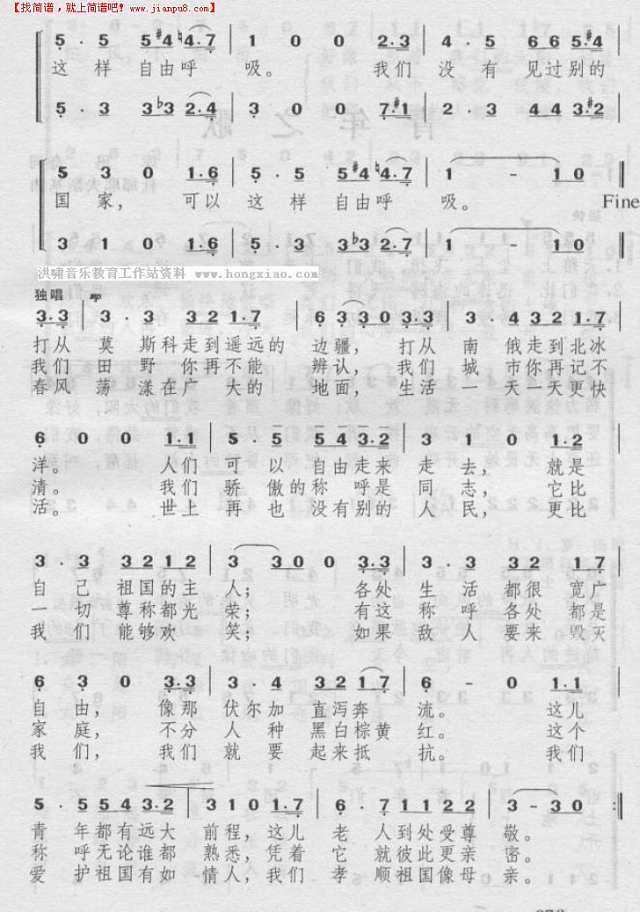 【找简谱，就上简谱吧! www.jianpu8.com】
5 · 5 5#4 ♮4·7 1 0 0 2·3 4 · 5 6 6 5·#4
这 样 自由呼 吸。 我们 没 有 见过别的
5 · 3 3♭3 2·4 3 0 0 7·#1 2 · 3 4 4 3·#2
5 3 0 1·6 5 · 5 5#4 ♮4·7 1 - 1 0
国 家， 可以 这 样 自由呼 吸。 Fine
3 1 0 1·6 5 · 3 3♭3 2·7 1 - 1 0
洪啸音乐教育工作站资料 — www.hongxiao.com —
独唱 mp
3·3 3 · 3 3 2 1·7 6 3 3 0 3·3 3 · 3 3 2 1·7
打从 莫 斯科走到遥远的 边疆， 打从 南 俄走到北冰
我们 田 野 你再不能 辨认， 我们 城 市你再记不
春风 荡 漾在广 大的 地面， 生活 一 天一天更快
6 0 0 1·1 5 · 5 5 4 3·2 3 1 0 1·1
洋。 人们 可 以 自由走来 走 去， 就是
清。 我们 骄 傲的称呼是 同 志， 它比
活。 世上 再 也 没有别的 人 民， 更比
3 · 3 3 2 1 2 3 - 3 0 0 3·3 3 · 3 3 2 1·7
自 己 祖国的主 人； 各处 生 活 都很 宽广
一 切 尊称都光 荣； 有这 称 呼 各处 都是
我 们 能够欢 笑； 如果 敌 人 要来 毁灭
6 3 0 3·3 3 · 4 3 2 1 7 6 - 0 1·1
自 由， 像那 伏尔加 直泻奔 流。 这儿
家 庭， 不分 人 种 黑白棕黄 红。 这个
我 们， 我们 就 要 起来抵 抗。 我们
5 · 5 5 5 4 3·2 3 1 0 1·7 6 · 7 1 7 4 2 3 - 3 0
青 年都有远大 前程，这儿 老 人到处受尊 敬。
称 呼无论谁都 熟悉，凭着 它 就彼此更亲 密。
爱 护祖国有如 情人，我们 孝 顺祖国像母 亲。